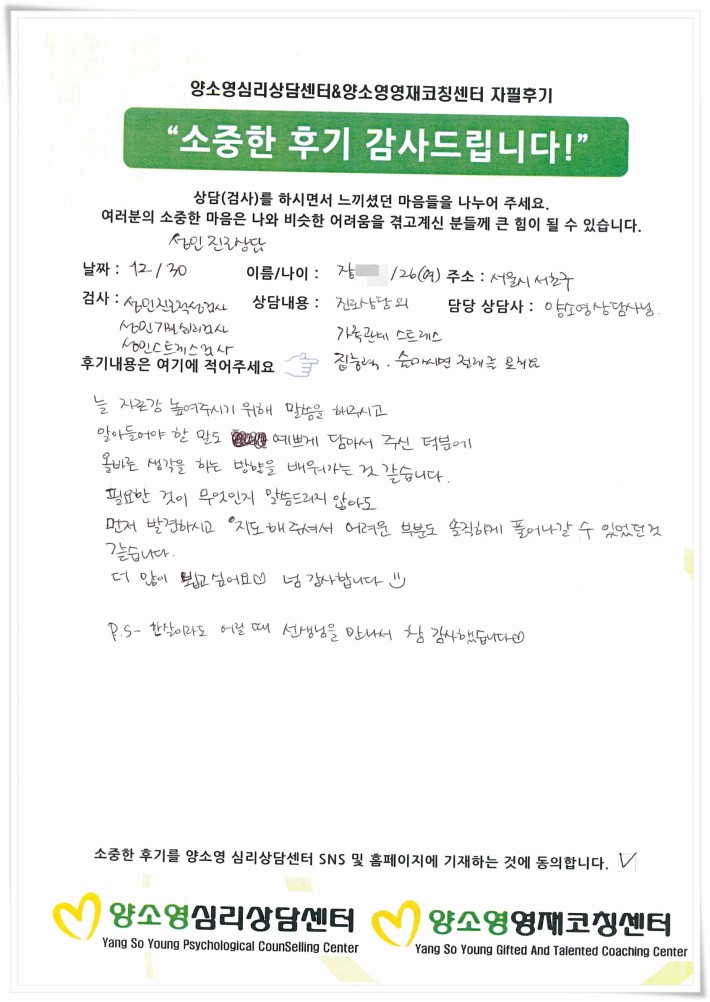 양소영심리상담센터&양소영영재코칭센터 자필후기
“소중한 후기 감사드립니다!”
상담(검사)를 하시면서 느끼셨던 마음들을 나누어 주세요.
여러분의 소중한 마음은 나와 비슷한 어려움을 겪고계신 분들께 큰 힘이 될 수 있습니다.
성인 진로상담
날짜 : 12/30 이름/나이 : 장 /26(여) 주소 : 서울시 서초구
검사 : 성인진로적성검사 상담내용 : 진로상담 외 담당 상담사 : 양소영상담사님.
성인기질심리검사 가족관계 스트레스
성인스트레스검사
후기내용은 여기에 적어주세요 집중력.
늘 자존감 높여주시기 위해 말씀을 해주시고
알아들어야 할 말도 예쁘게 담아서 주신 덕분에
올바로 생각을 하는 방향을 배워가는 것 같습니다.
필요한 것이 무엇인지 말씀드리지 않아도
먼저 발견하시고 지도해주셔서 어려운 부분도 솔직하게 풀어나갈 수 있었던것
같습니다.
더 많이 뵙고싶어요♡ 넘 감사합니다
P.S- 한살이라도 어릴 때 선생님을 만나서 참 감사했습니다♡
소중한 후기를 양소영 심리상담센터 SNS 및 홈페이지에 기재하는 것에 동의합니다. ✓
양소영심리상담센터 양소영영재코칭센터
Yang So Young Psychological CounSelling Center Yang So Young Gifted And Talented Coaching Center